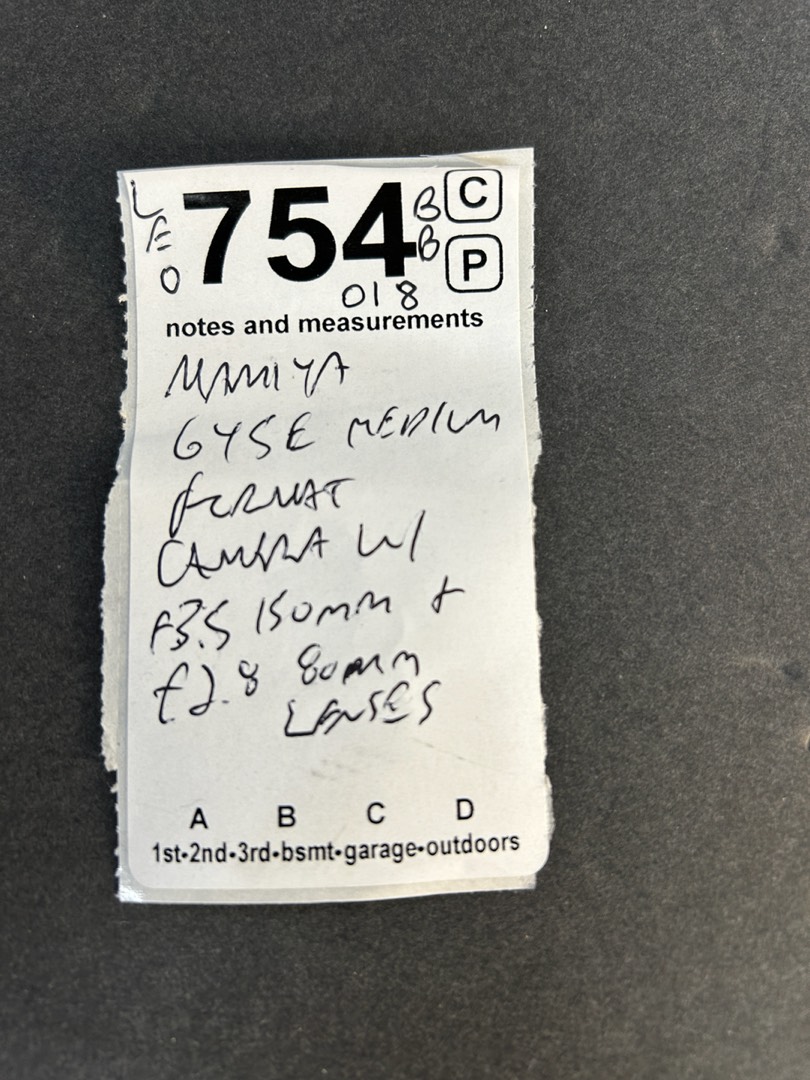 LEO 754 BB C P
018
notes and measurements
MAMIYA
645E MEDIUM
FORMAT
CAMERA W/
F3.5 150mm +
f2.8 80mm
LENSES
A B C D
1st•2nd•3rd•bsmt•garage•outdoors